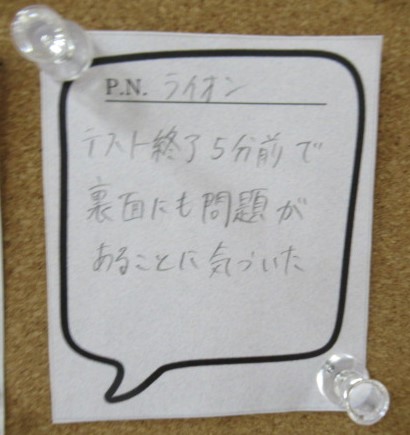 P.N. ライオン
テスト終了5分前で
裏面にも問題が
あることに気づいた